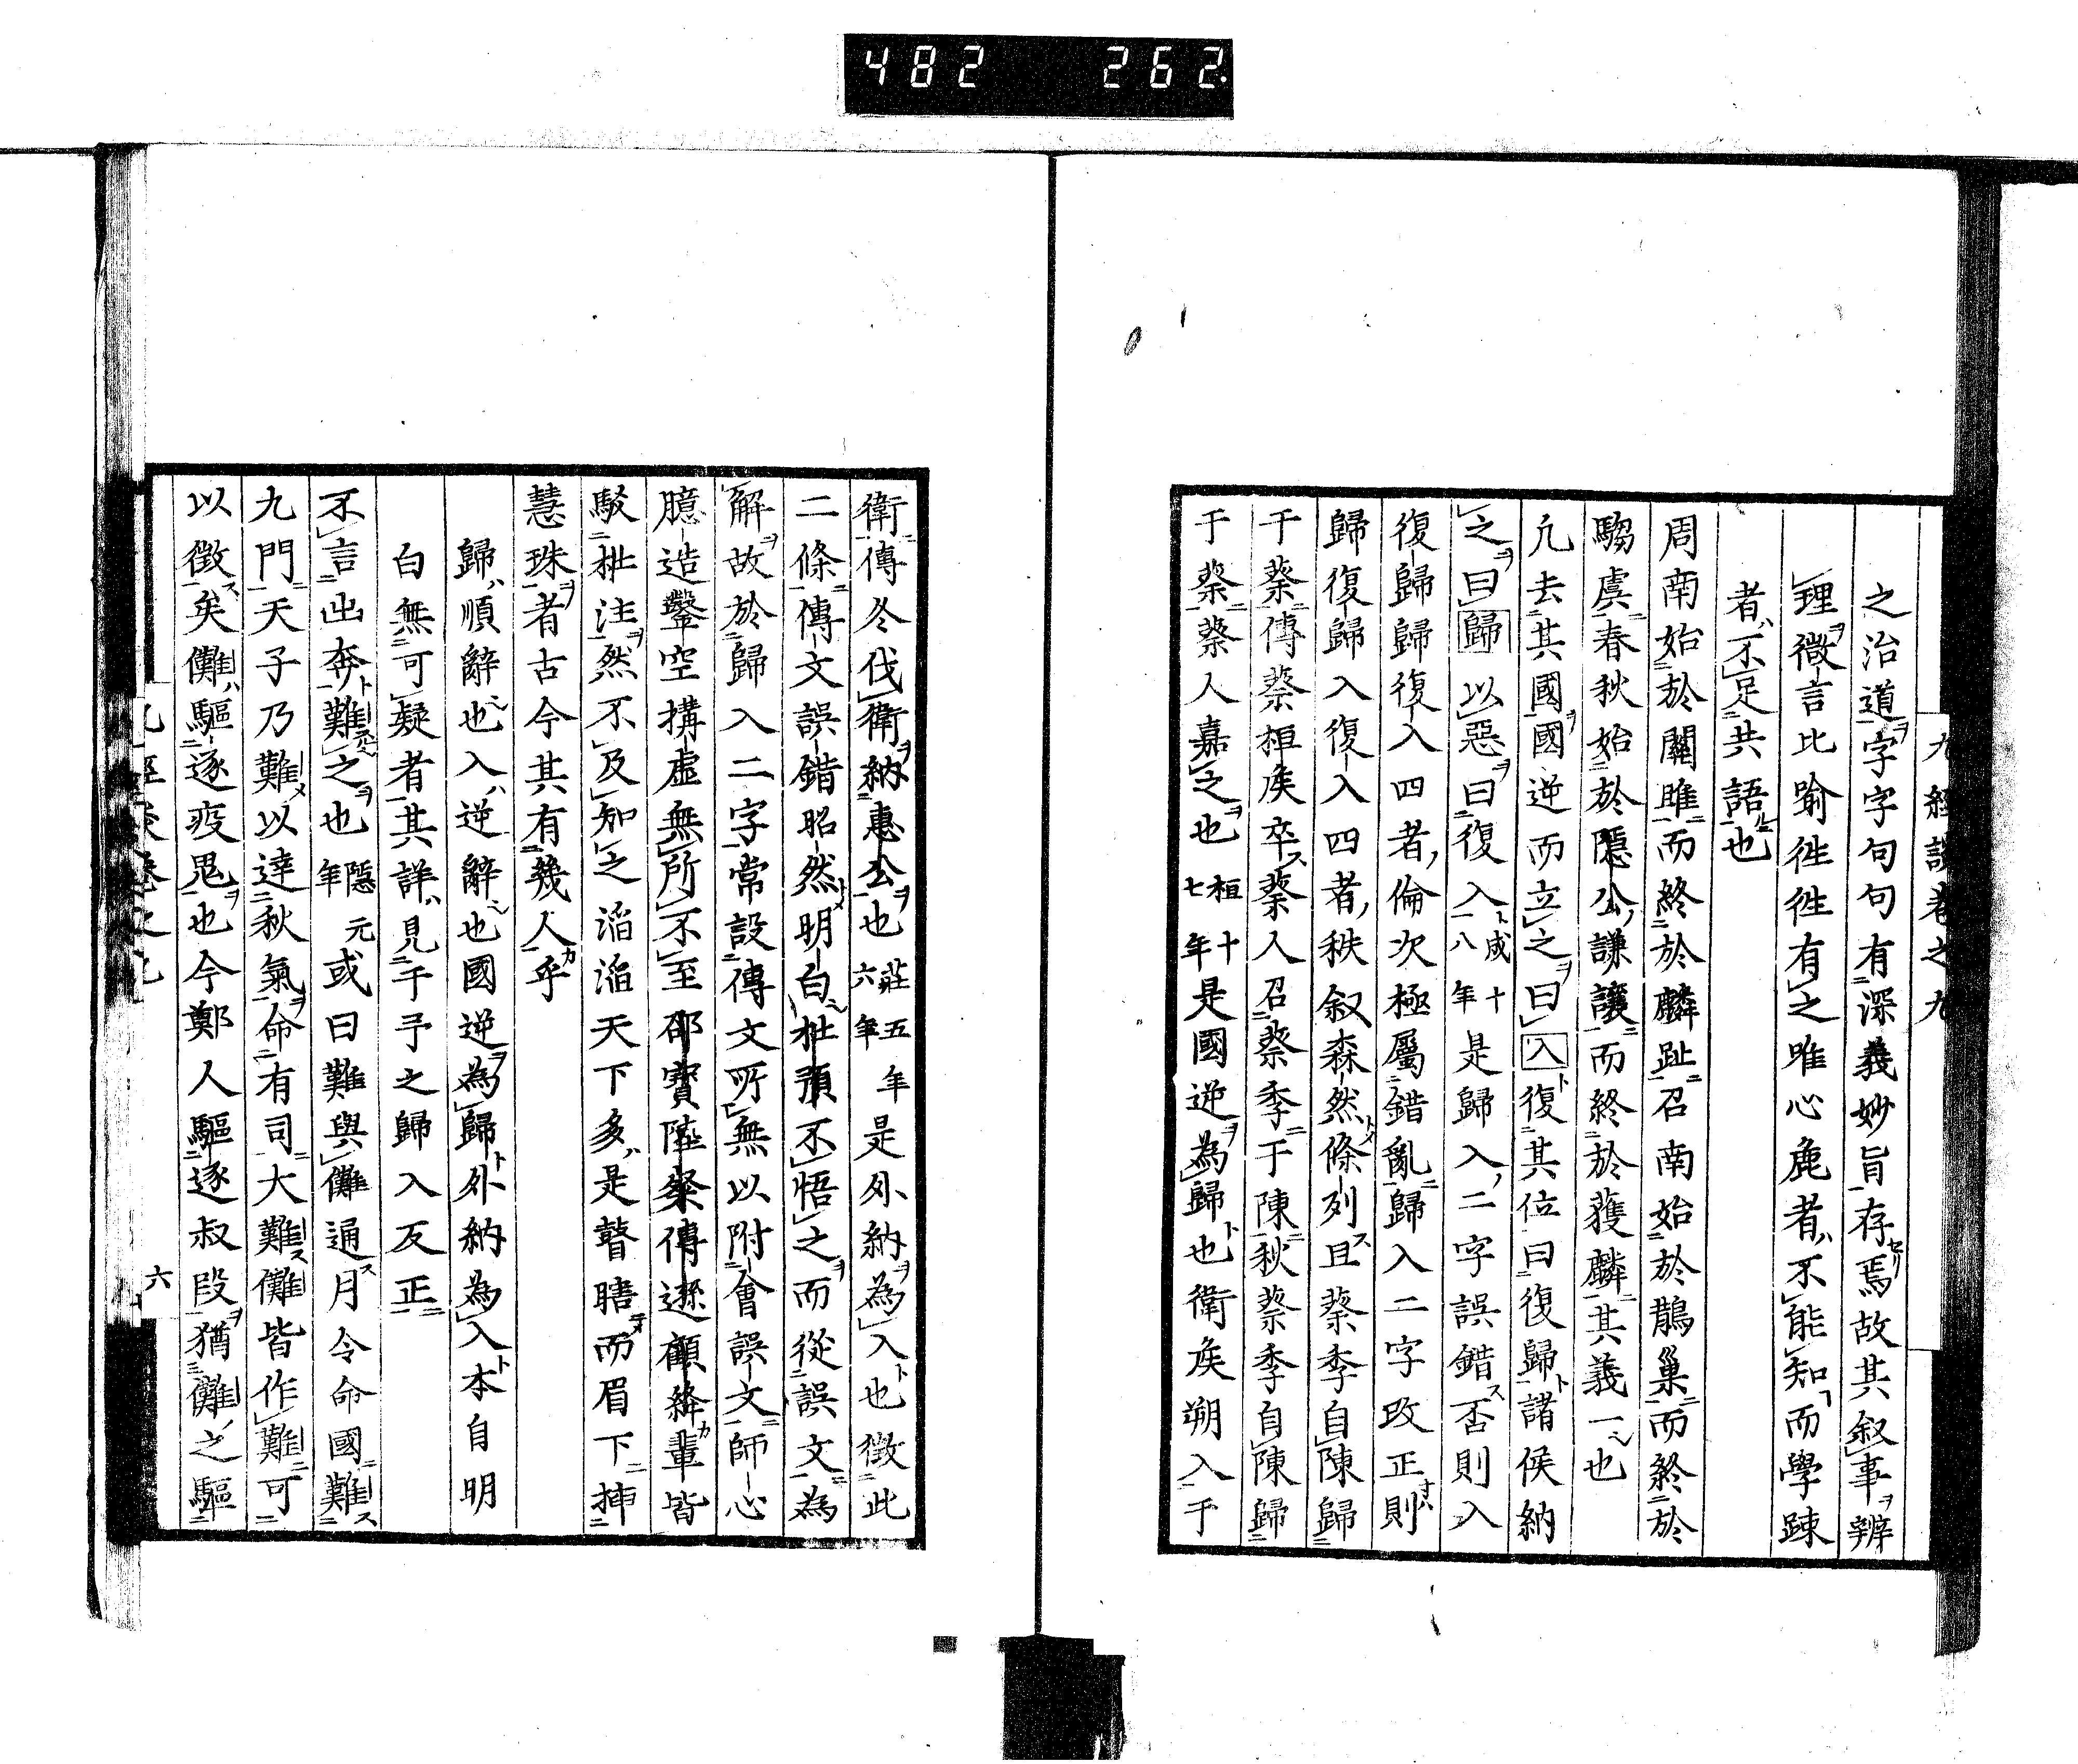 482 262
九經談卷之九
之治道字字句句有深義妙旨存焉故其叙事辨
理微言比喻徃徃有之唯心麁者不能知而學踈
者不足共語也
周南始於關雎而終於麟趾召南始於鵲巢而終於
騶虞春秋始於隱公謙讓而終於獲麟其義一也
凢去其國國逆而立之曰入復其位曰復歸諸侯納
之曰歸以惡曰復入成十八年是歸入二字誤錯否則入
復歸歸復入四者倫次極屬錯亂歸入二字改正則
歸復歸入復入四者秩叙森然條列且蔡季自陳歸
于蔡傳蔡桓矦卒蔡人召蔡季于陳秋蔡季自陳歸
于蔡蔡人嘉之也桓十七年是國逆為歸也衛矦朔入于
衛傳冬伐衛納惠公也莊五年六年是外納為入也徴此
二條傳文誤錯昭然明白杜預不悟之而從誤文為
解故於歸入二字常設傳文所無以附會誤文師心
臆造鑿空搆虛無所不至邵寶陸粲傳遜顧絳輩皆
駁杜注然不及知之滔滔天下多是瞽瞎而眉下挿
慧珠者古今其有幾人乎
歸順辭也入逆辭也國逆為歸外納為入本自明
白無可疑者其詳見于予之歸入反正
不言出奔難之也隱元年或曰難與儺通月令命國難
九門天子乃難以達秋氣命有司大難儺皆作難可
以徴矣儺驅逐疫鬼也今鄭人驅逐叔段猶儺之驅
六